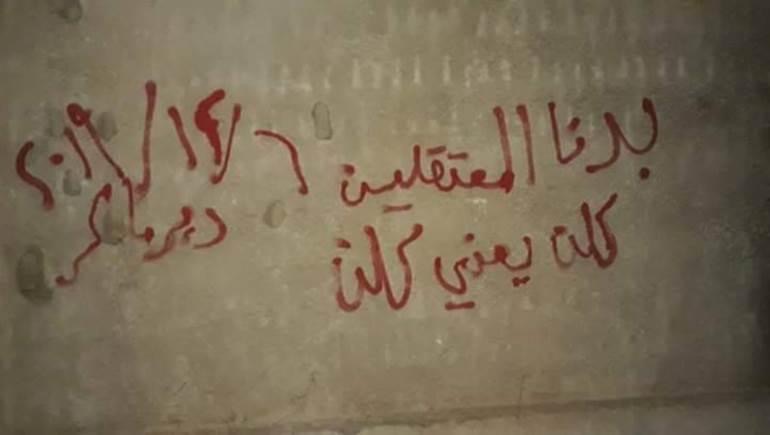 بدنا المعتقلين ٦/١٤/٢٠١٩
كلن يعني كلن ديرماكر